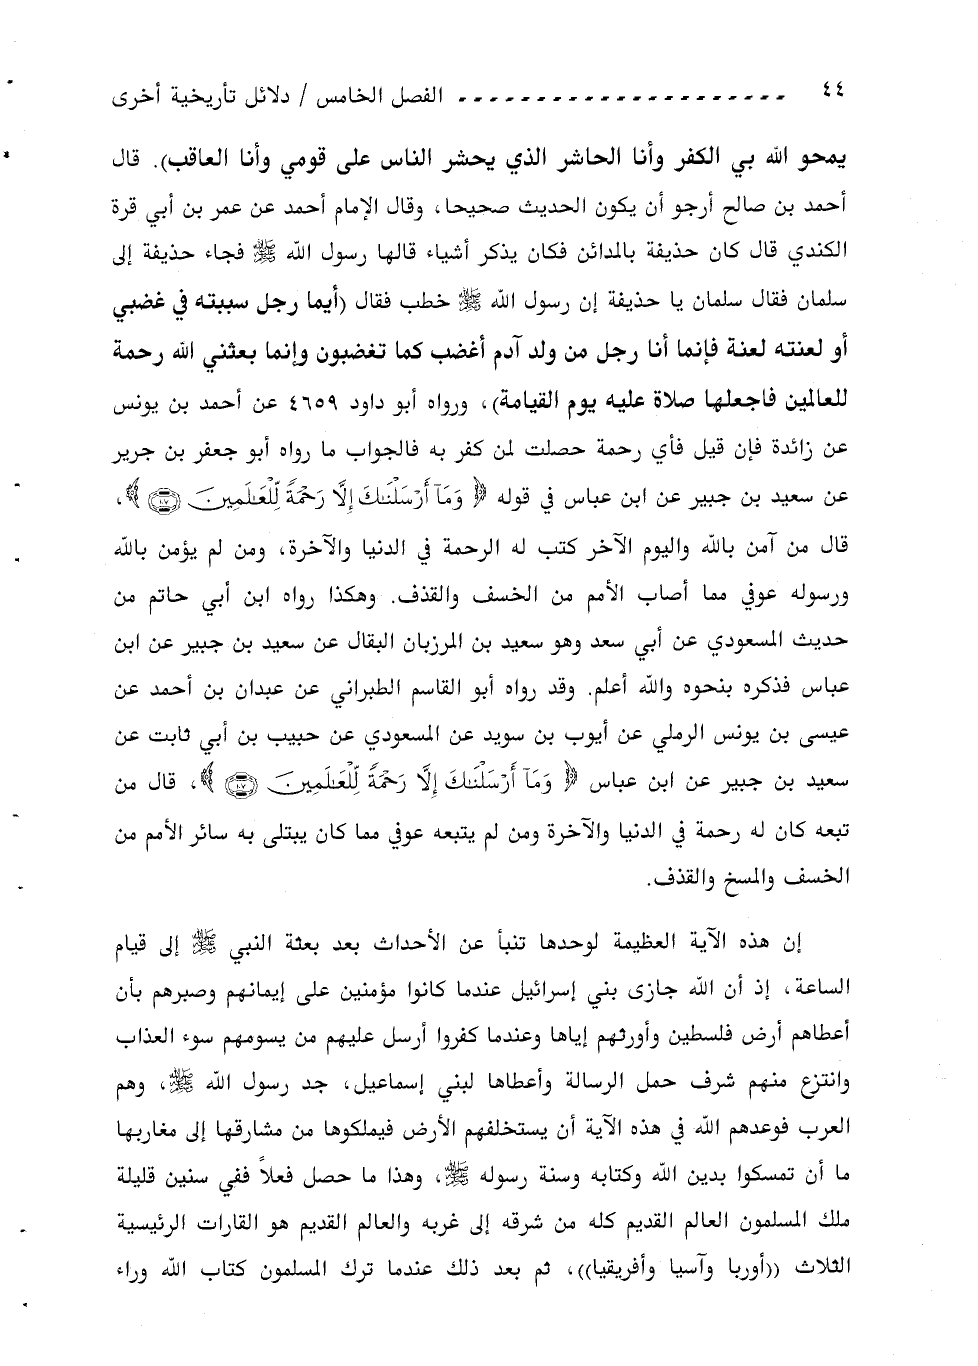 ٤٤ --------------------- الفصل الخامس / دلائل تأريخية أخرى
يمحو الله بي الكفر وأنا الحاشر الذي يحشر الناس على قومي وأنا العاقب). قال
أحمد بن صالح أرجو أن يكون الحديث صحيحا، وقال الإمام أحمد عن عمر بن أبي قرة
الكندي قال كان حذيفة بالمدائن فكان يذكر أشياء قالها رسول الله ﷺ فجاء حذيفة إلى
سلمان فقال سلمان يا حذيفة إن رسول الله ﷺ خطب فقال (أيما رجل سببته في غضبي
أو لعنته لعنة فإنما أنا رجل من ولد آدم أغضب كما تغضبون وإنما بعثني الله رحمة
للعالمين فاجعلها صلاة عليه يوم القيامة)، ورواه أبو داود ٤٦٥٩ عن أحمد بن يونس
عن زائدة فإن قيل فأي رحمة حصلت لمن كفر به فالجواب ما رواه أبو جعفر بن جرير
عن سعيد بن جبير عن ابن عباس في قوله ﴿ وَمَآ أَرْسَلْنَٰكَ إِلَّا رَحْمَةً لِّلْعَٰلَمِينَ ١٠٧ ﴾،
قال من آمن بالله واليوم الآخر كتب له الرحمة في الدنيا والآخرة، ومن لم يؤمن بالله
ورسوله عوفي مما أصاب الأمم من الخسف والقذف. وهكذا رواه ابن أبي حاتم من
حديث المسعودي عن أبي سعد وهو سعيد بن المرزبان البقال عن سعيد بن جبير عن ابن
عباس فذكره بنحوه والله أعلم. وقد رواه أبو القاسم الطبراني عن عبدان بن أحمد عن
عيسى بن يونس الرملي عن أيوب بن سويد عن المسعودي عن حبيب بن أبي ثابت عن
سعيد بن جبير عن ابن عباس ﴿ وَمَآ أَرْسَلْنَٰكَ إِلَّا رَحْمَةً لِّلْعَٰلَمِينَ ١٠٧ ﴾، قال من
تبعه كان له رحمة في الدنيا والآخرة ومن لم يتبعه عوفي مما كان يبتلى به سائر الأمم من
الخسف والمسخ والقذف.
إن هذه الآية العظيمة لوحدها تنبأ عن الأحداث بعد بعثة النبي ﷺ إلى قيام
الساعة، إذ أن الله جازى بني إسرائيل عندما كانوا مؤمنين على إيمانهم وصبرهم بأن
أعطاهم أرض فلسطين وأورثهم إياها وعندما كفروا أرسل عليهم من يسومهم سوء العذاب
وانتزع منهم شرف حمل الرسالة وأعطاها لبني إسماعيل، جد رسول الله ﷺ، وهم
العرب فوعدهم الله في هذه الآية أن يستخلفهم الأرض فيملكوها من مشارقها إلى مغاربها
ما أن تمسكوا بدين الله وكتابه وسنة رسوله ﷺ، وهذا ما حصل فعلاً ففي سنين قليلة
ملك المسلمون العالم القديم كله من شرقه إلى غربه والعالم القديم هو القارات الرئيسية
الثلاث ((أوربا وآسيا وأفريقيا))، ثم بعد ذلك عندما ترك المسلمون كتاب الله وراء